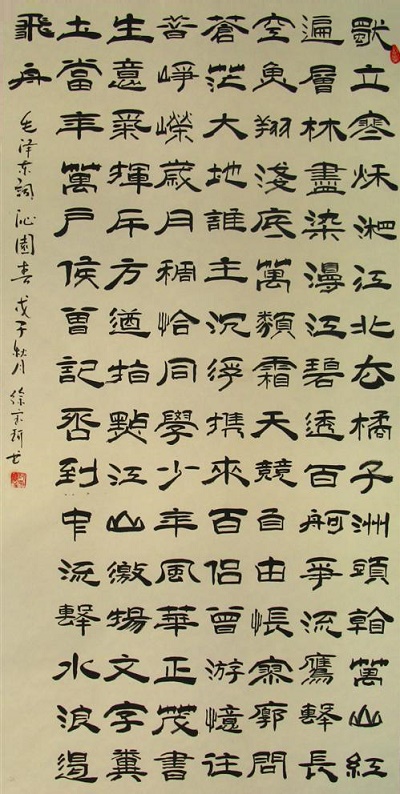 獨立寒秌湘江北去橘子洲頭看萬山紅
遍層林盡染漫江碧透百舸爭流鷹擊長
空魚翔淺底萬類霜天競自由悵寥廓問
蒼茫大地誰主沉浮携來百侶曾游憶往
昔崢嶸歲月稠恰同學少年風華正茂書
生意氣揮斥方遒指點江山激揚文字糞
土當年萬户侯曾記否到中流擊水浪遏
飛舟
毛泽东詞沁園春戊子秋月徐